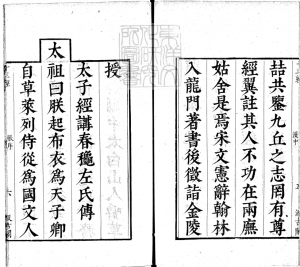 喆共鑒九丘之志罔有尊
經翼註其人不功在兩廡
姑舍是焉宋文憲辭翰林
入龍門著書後徵詣金陵
授
太子經講春穐左氏傳
太祖曰朕起布衣為天子卿
自草萊列侍從為國文人